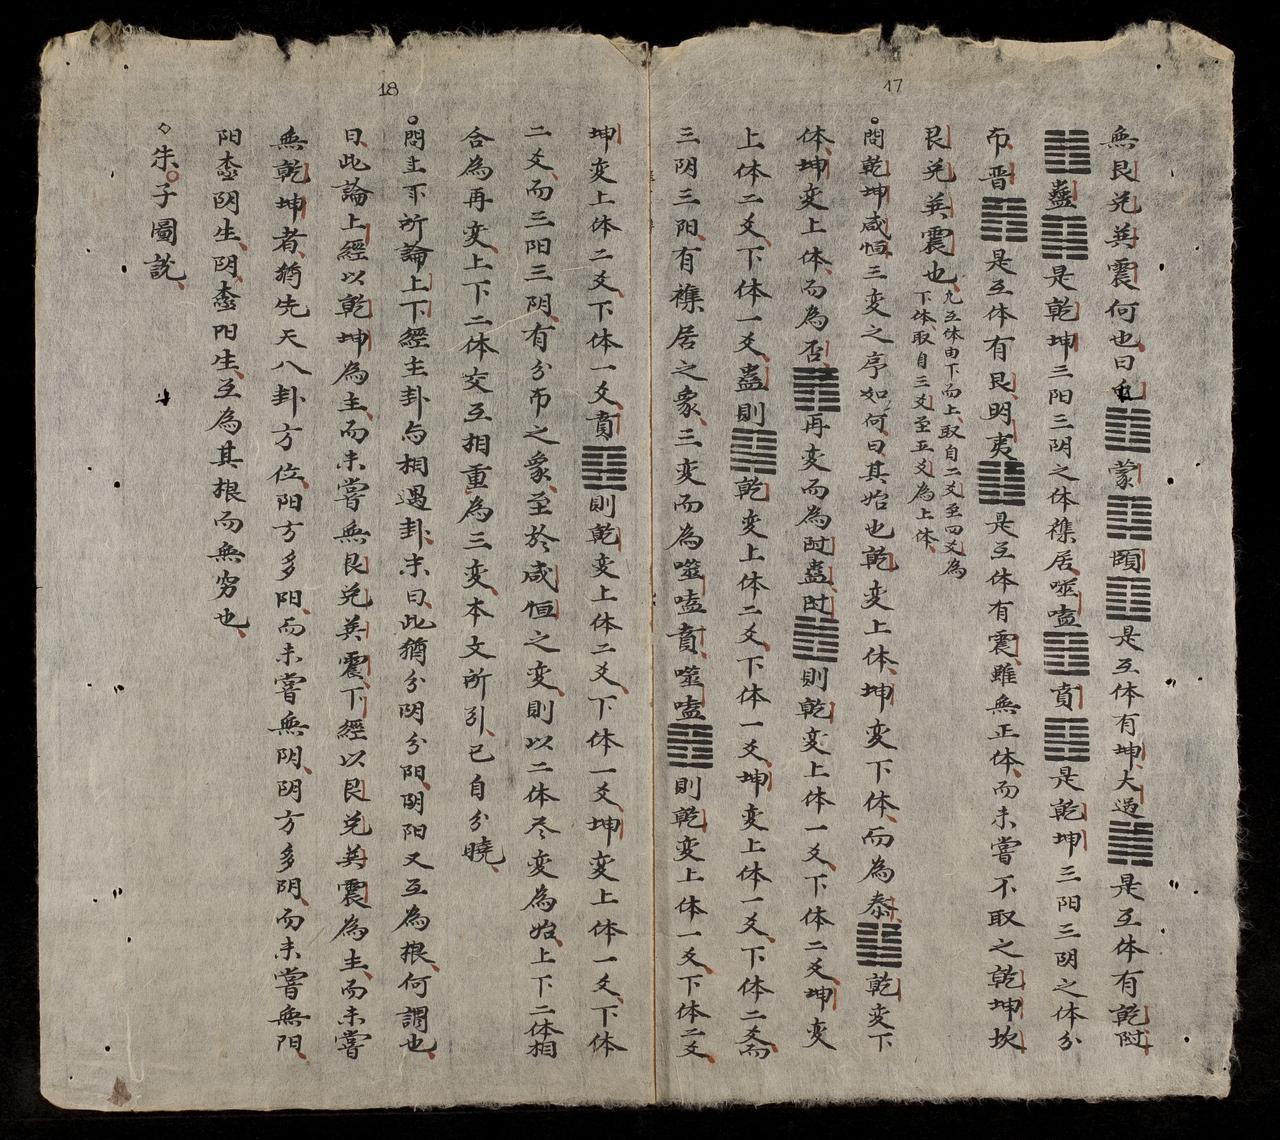 17
無艮兑巽震何也曰屯䷂蒙䷃頤䷚是互体有坤大過䷛是互体有乾随
䷐蠱䷑是乾坤三阳三阴之体襍居噬嗑䷔賁䷕是乾坤三阳三阴之体分
布晋䷢是互体有艮明夷䷣是互体有震雖無正体而未嘗不取之乾坤坎
艮兑巽震也
凡互体由下而上取自二爻至四爻為
下体取自三爻至五爻為上体
○問乾坤咸恒三变之序如何曰其始也乾变上体坤变下体而為泰䷊乾变下
体坤变上体而為否䷋再变而為随蠱随䷐則乾变上体一爻下体二爻坤变
上体二爻下体一爻蠱則䷑乾变上体二爻下体一爻坤变上体一爻下体二爻而
三阴三阳有襍居之象三变而為噬嗑賁噬嗑䷔則乾变上体一爻下体二爻
18
坤变上体二爻下体一爻賁䷕則乾变上体二爻下体一爻坤变上体一爻下体
二爻而三阳三阴有分布之象至於咸恒之变則以二体尽变為始上下二体相
合為再变上下二体交互相重為三变本文所引已自分曉
○問圭下所論上下經主卦与相遇卦未曰此猶分阴分阳阴阳又互為根何謂也
曰此論上經以乾坤為主而未嘗無艮兑巽震下經以艮兑巽震為主而未嘗
無乾坤者猶先天八卦方位阳方多阳而未嘗無阴阴方多阴而未嘗無阳
阳中阴生阴中阳生互為其根而無穷也
◇朱○子圖説